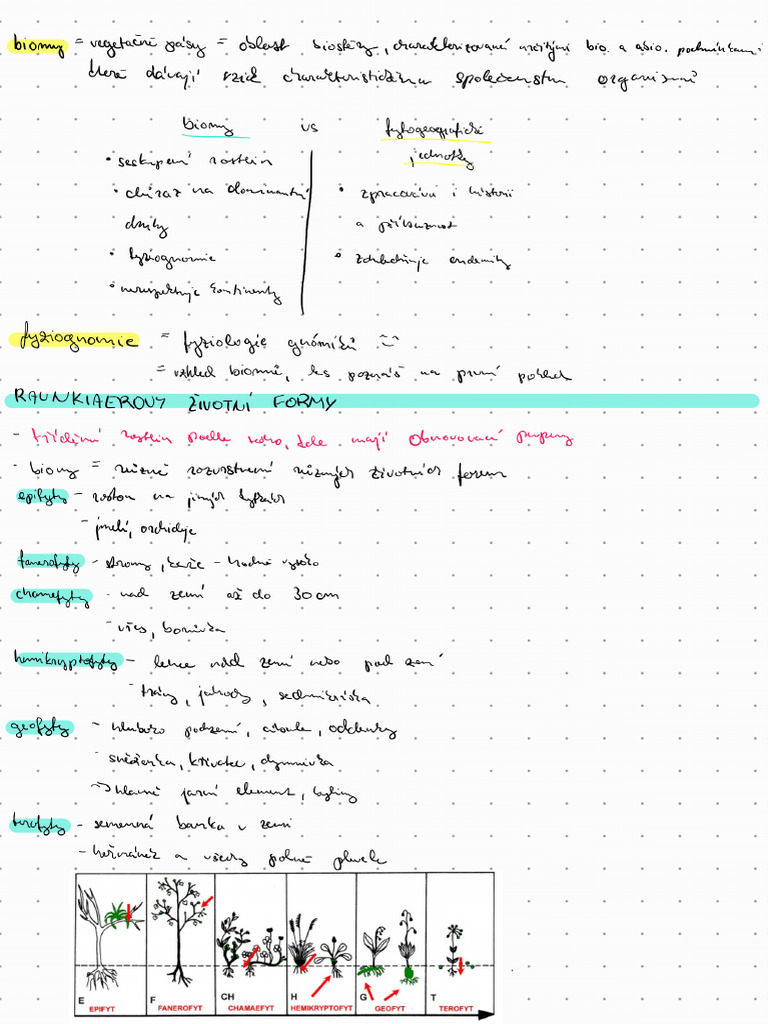 biomy = vegetační pásy = oblast biosféry, charakterizované určitými bio. a abio. podmínkami
které dávají vznik charakteristickému společenstvu organismů
biomy vs fytogeografické
jednotky
• seskupení rostlin
• důraz na dominantní
druhy
• fyziognomie
• nerespektuje kontinenty
• zpracovává i historii
a příbuznost
• zohledňuje endemity
fyziognomie = fyziologie gnómiků
= vzhled biomů, les poznáš na první pohled
RAUNKIAEROVY ŽIVOTNÍ FORMY
- třídění rostlin podle toho, kde mají obnovovací pupeny
- biomy = různé rozvrstvení různých životních forem
epifyty - rostou na jiných
- jmelí, orchideje
fanerofyty - stromy, keře - hodně vysoko
chamefyty - nad zemí až do 30 cm
- vřes, borůvka
hemikryptofyty - lehce nad zemí nebo pod zemí
- trávy, jahody, sedmikráska
geofyty - hluboko podzemí, cibule, oddenky
- sněženka, křivatec, dymnivka
-> hlavně jarní element, byliny
terofyty - semenná banka v zemi
- heřmánek a všechny polní plevele
E EPIFYT
F FANEROFYT
CH CHAMAEFYT
H HEMIKRYPTOFYT
G GEOFYT
T TEROFYT